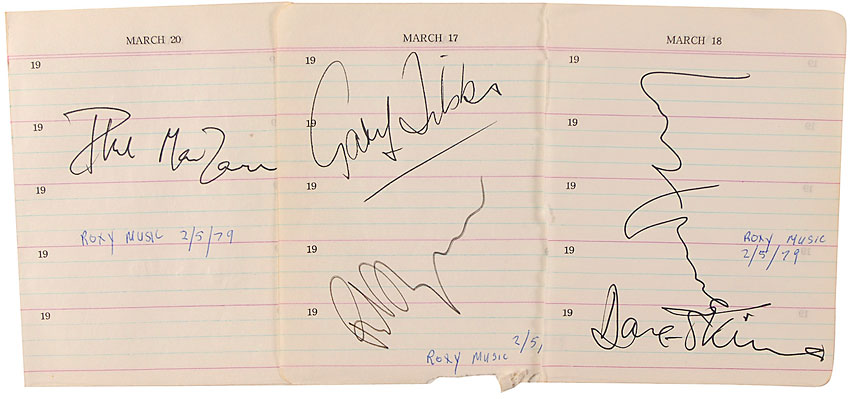 MARCH 20
19
19
Phil Manzan
19
ROXY MUSIC 2/5/79
19
19
MARCH 17
19
Gary Tibbs
19
19
19
19
ROXY MUSIC 2/5,
MARCH 18
19
19
19
ROXY MUSIC
2/5/79
19
19
Dave Skinner